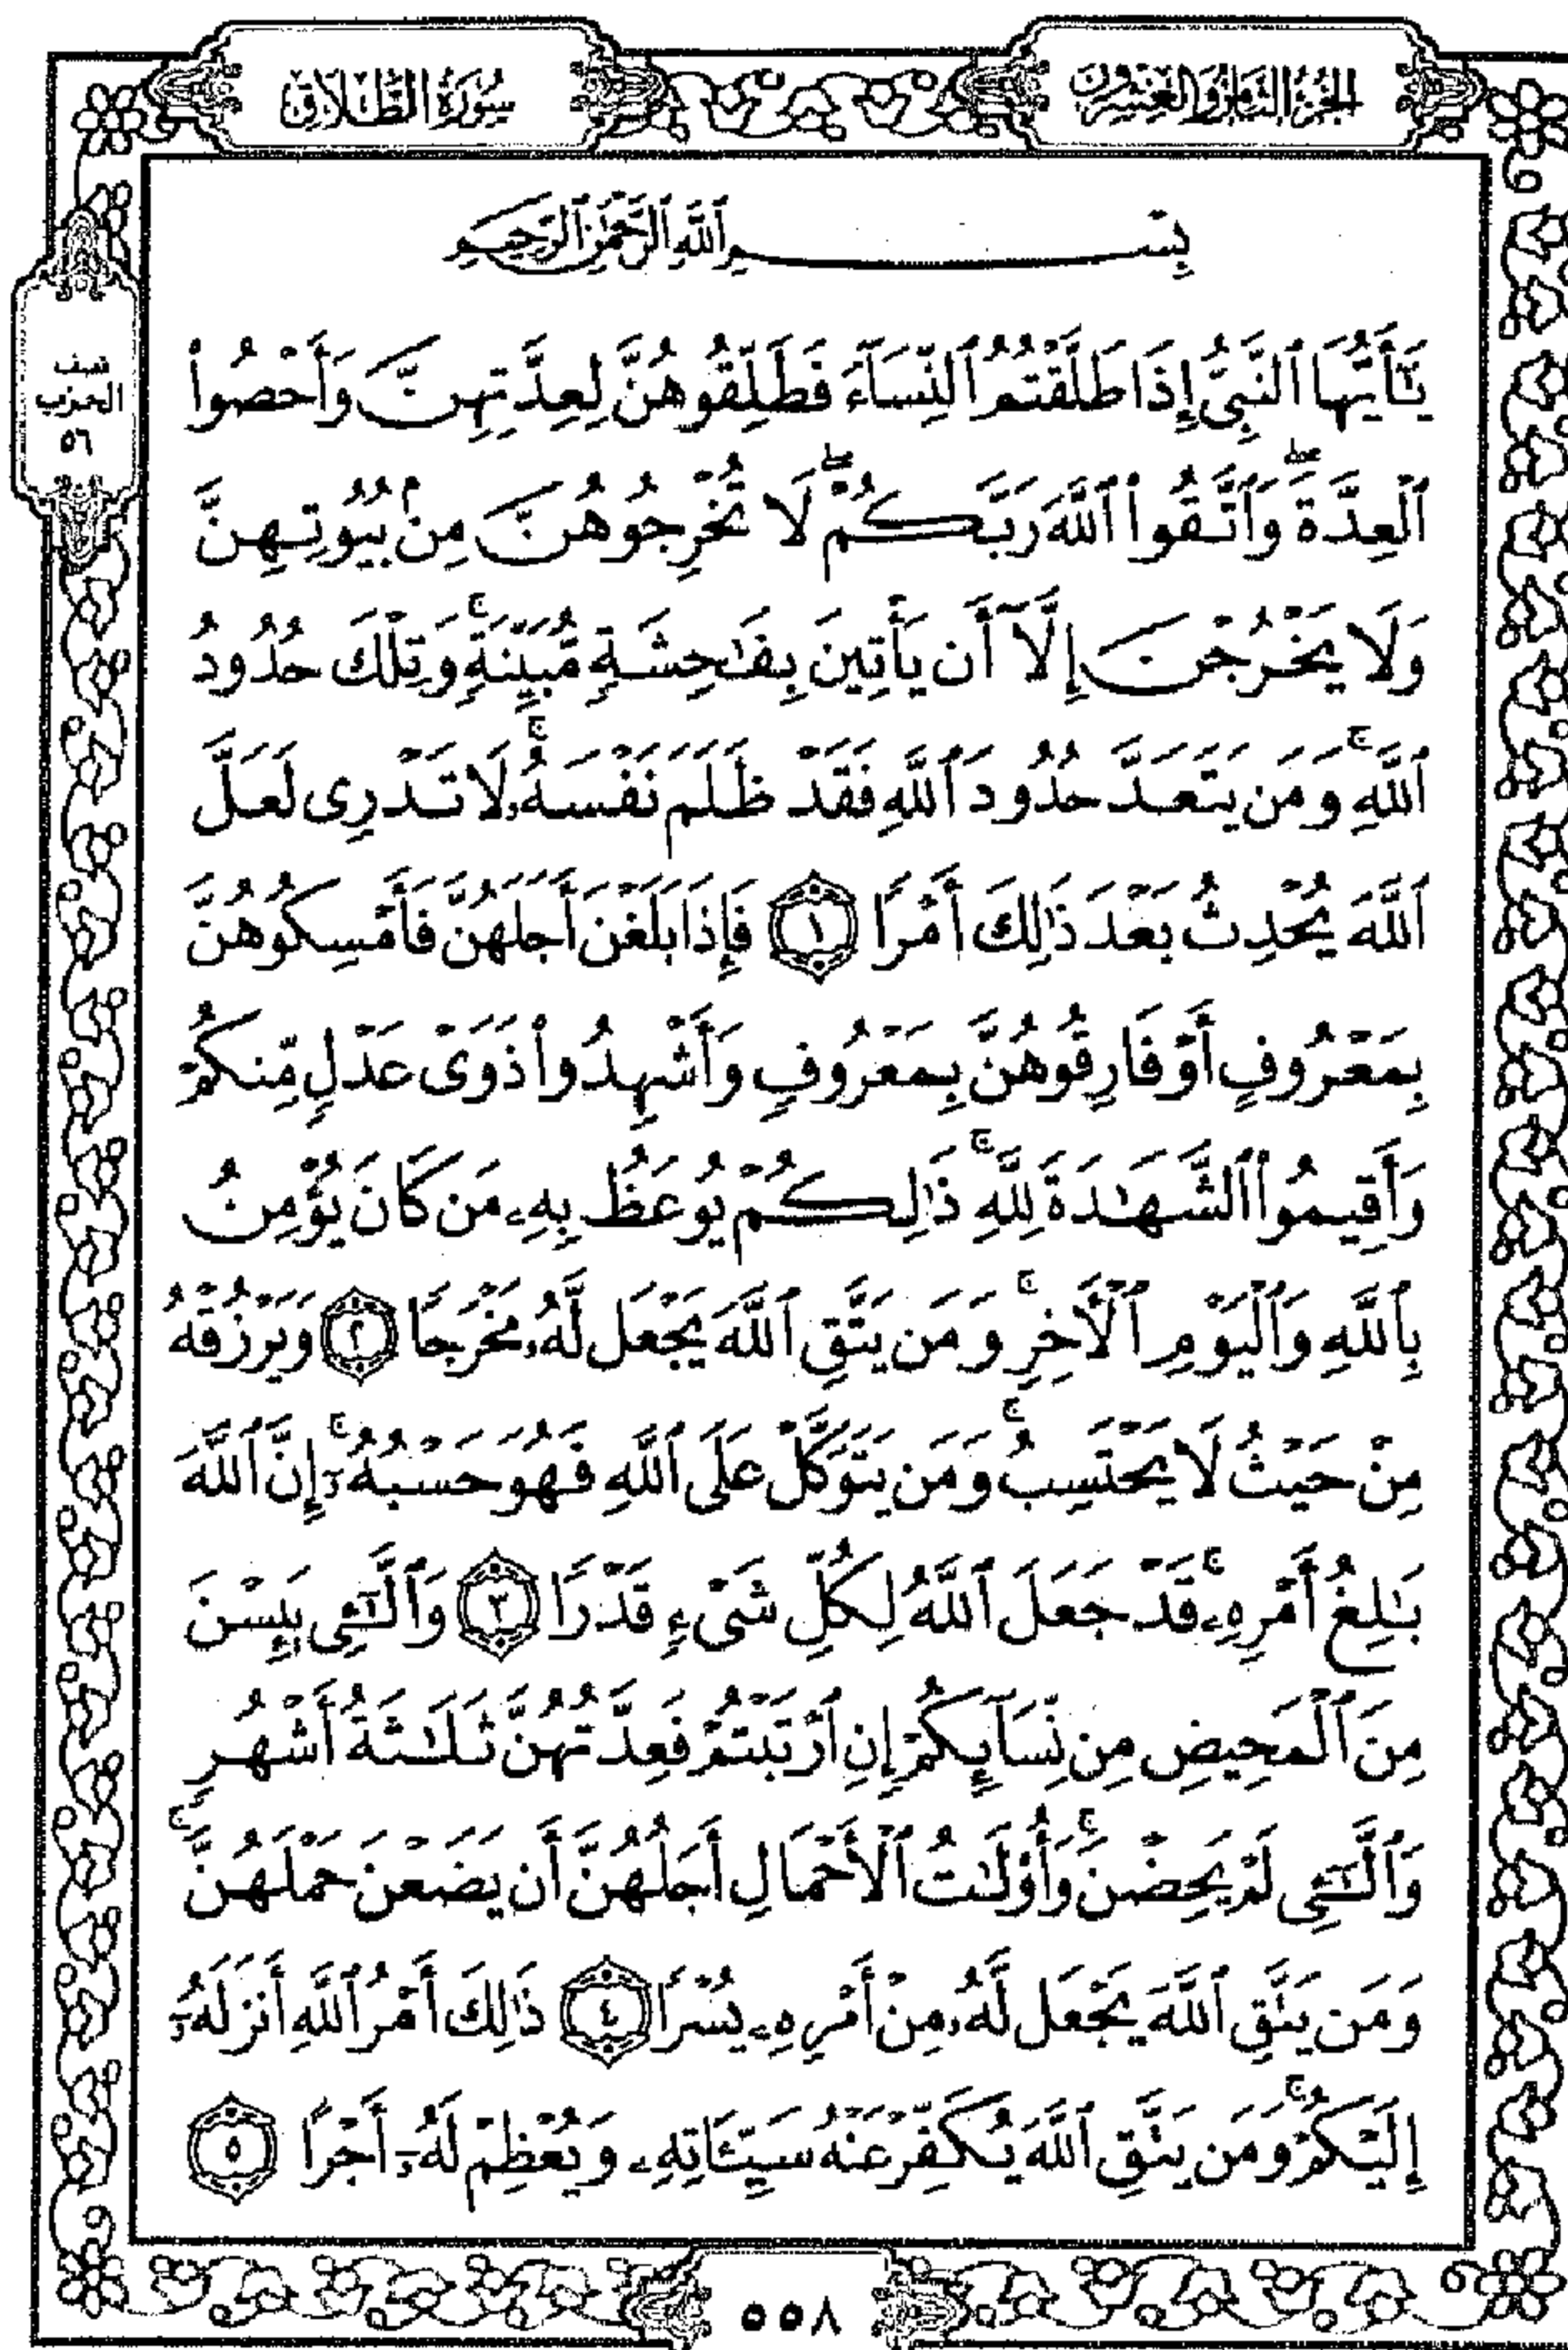 الجزء الثامن والعشرون
سورة الطلاق
بِسْمِ ٱللَّهِ ٱلرَّحْمَٰنِ ٱلرَّحِيمِ
نصف
الحزب
٥٦
يَٰٓأَيُّهَا ٱلنَّبِىُّ إِذَا طَلَّقْتُمُ ٱلنِّسَآءَ فَطَلِّقُوهُنَّ لِعِدَّتِهِنَّ وَأَحْصُوا۟
ٱلْعِدَّةَ ۖ وَٱتَّقُوا۟ ٱللَّهَ رَبَّكُمْ ۖ لَا تُخْرِجُوهُنَّ مِنۢ بُيُوتِهِنَّ
وَلَا يَخْرُجْنَ إِلَّآ أَن يَأْتِينَ بِفَٰحِشَةٍ مُّبَيِّنَةٍ ۚ وَتِلْكَ حُدُودُ
ٱللَّهِ ۚ وَمَن يَتَعَدَّ حُدُودَ ٱللَّهِ فَقَدْ ظَلَمَ نَفْسَهُۥ ۚ لَا تَدْرِى لَعَلَّ
ٱللَّهَ يُحْدِثُ بَعْدَ ذَٰلِكَ أَمْرًا ١ فَإِذَا بَلَغْنَ أَجَلَهُنَّ فَأَمْسِكُوهُنَّ
بِمَعْرُوفٍ أَوْ فَارِقُوهُنَّ بِمَعْرُوفٍ وَأَشْهِدُوا۟ ذَوَىْ عَدْلٍ مِّنكُمْ
وَأَقِيمُوا۟ ٱلشَّهَٰدَةَ لِلَّهِ ۚ ذَٰلِكُمْ يُوعَظُ بِهِۦ مَن كَانَ يُؤْمِنُ
بِٱللَّهِ وَٱلْيَوْمِ ٱلْـَٔاخِرِ ۚ وَمَن يَتَّقِ ٱللَّهَ يَجْعَل لَّهُۥ مَخْرَجًا ٢ وَيَرْزُقْهُ
مِنْ حَيْثُ لَا يَحْتَسِبُ ۚ وَمَن يَتَوَكَّلْ عَلَى ٱللَّهِ فَهُوَ حَسْبُهُۥٓ ۚ إِنَّ ٱللَّهَ
بَٰلِغُ أَمْرِهِۦ ۚ قَدْ جَعَلَ ٱللَّهُ لِكُلِّ شَىْءٍ قَدْرًا ٣ وَٱلَّٰٓـِٔى يَئِسْنَ
مِنَ ٱلْمَحِيضِ مِن نِّسَآئِكُمْ إِنِ ٱرْتَبْتُمْ فَعِدَّتُهُنَّ ثَلَٰثَةُ أَشْهُرٍ
وَٱلَّٰٓـِٔى لَمْ يَحِضْنَ ۚ وَأُو۟لَٰتُ ٱلْأَحْمَالِ أَجَلُهُنَّ أَن يَضَعْنَ حَمْلَهُنَّ ۚ
وَمَن يَتَّقِ ٱللَّهَ يَجْعَل لَّهُۥ مِنْ أَمْرِهِۦ يُسْرًا ٤ ذَٰلِكَ أَمْرُ ٱللَّهِ أَنزَلَهُۥٓ
إِلَيْكُمْ ۚ وَمَن يَتَّقِ ٱللَّهَ يُكَفِّرْ عَنْهُ سَيِّـَٔاتِهِۦ وَيُعْظِمْ لَهُۥٓ أَجْرًا ٥
٥٥٨